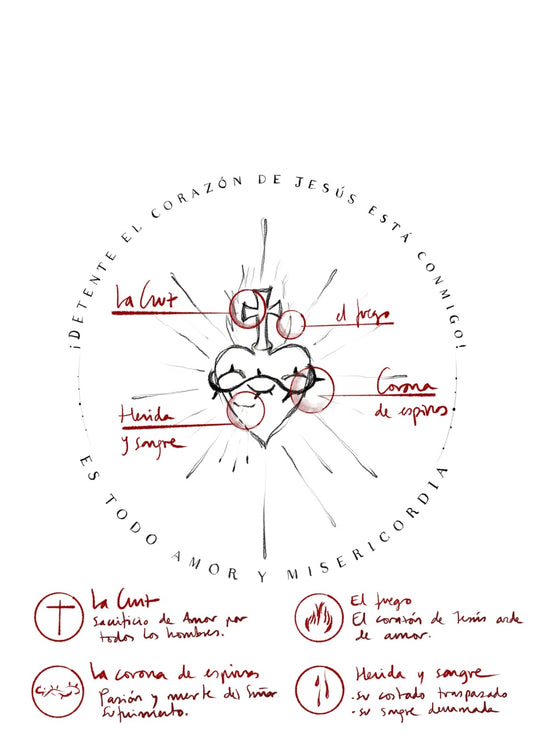 ¡DETENTE EL CORAZÓN DE JESÚS ESTÁ CONMIGO!
La Cruz
el fuego
Corona
de espinas
Herida
y sangre
ES TODO AMOR Y MISERICORDIA
La Cruz
Sacrificio de Amor por
todos los hombres.
El fuego
El corazón de Jesús arde
de amor.
La corona de espinas
Pasión y muerte del Señor
Sufrimiento.
Herida y sangre
-su costado traspasado
-su sangre derramada